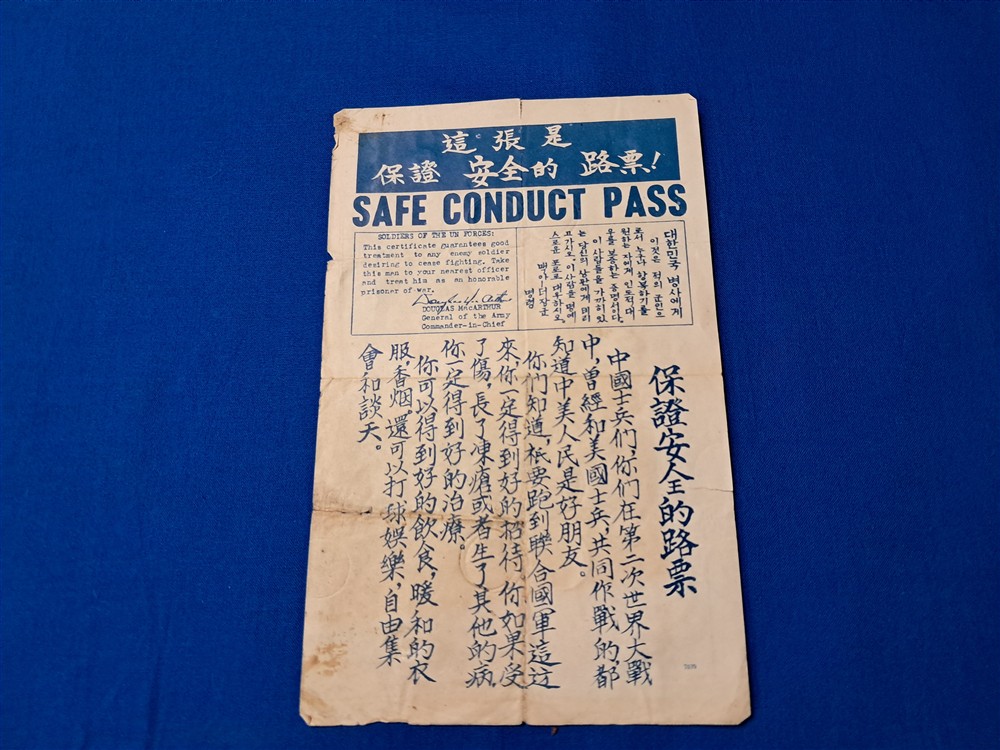 這張是
保證 安全的 路票!
SAFE CONDUCT PASS
SOLDIERS OF THE UN FORCES:
This certificate guarantees good
treatment to any enemy soldier
desiring to cease fighting. Take
this man to your nearest officer
and treat him as an honorable
prisoner of war.
Douglas MacArthur
DOUGLAS MacARTHUR
General of the Army
Commander-in-Chief
대한민국 병사에게
이것은 적의 군인으
로서 누구나 항복하기를
원하는 자에게 인도적 대
우를 보증하는 증명서이다.
이 사람들을 가까히 있
는 당신의 상관에게 데리
고 가시오. 이 사람을 명예
스로운 포로로 대우하시오.
맥아-더 장군
명령
保證安全的路票
中國士兵们,你们在第二次世界大戰
中,曾經和美國士兵,共同作戰的,都
知道中美人民是好朋友。
你们知道,祇要跑到聯合國軍這边
來,你一定得到好的招待。你如果受
了傷,長了凍瘡或者生了其他的病,
你一定得到好的治療。
你可以得到好的飲食,暖和的衣
服,香烟,還可以打球娛樂,自由集
會和談天。